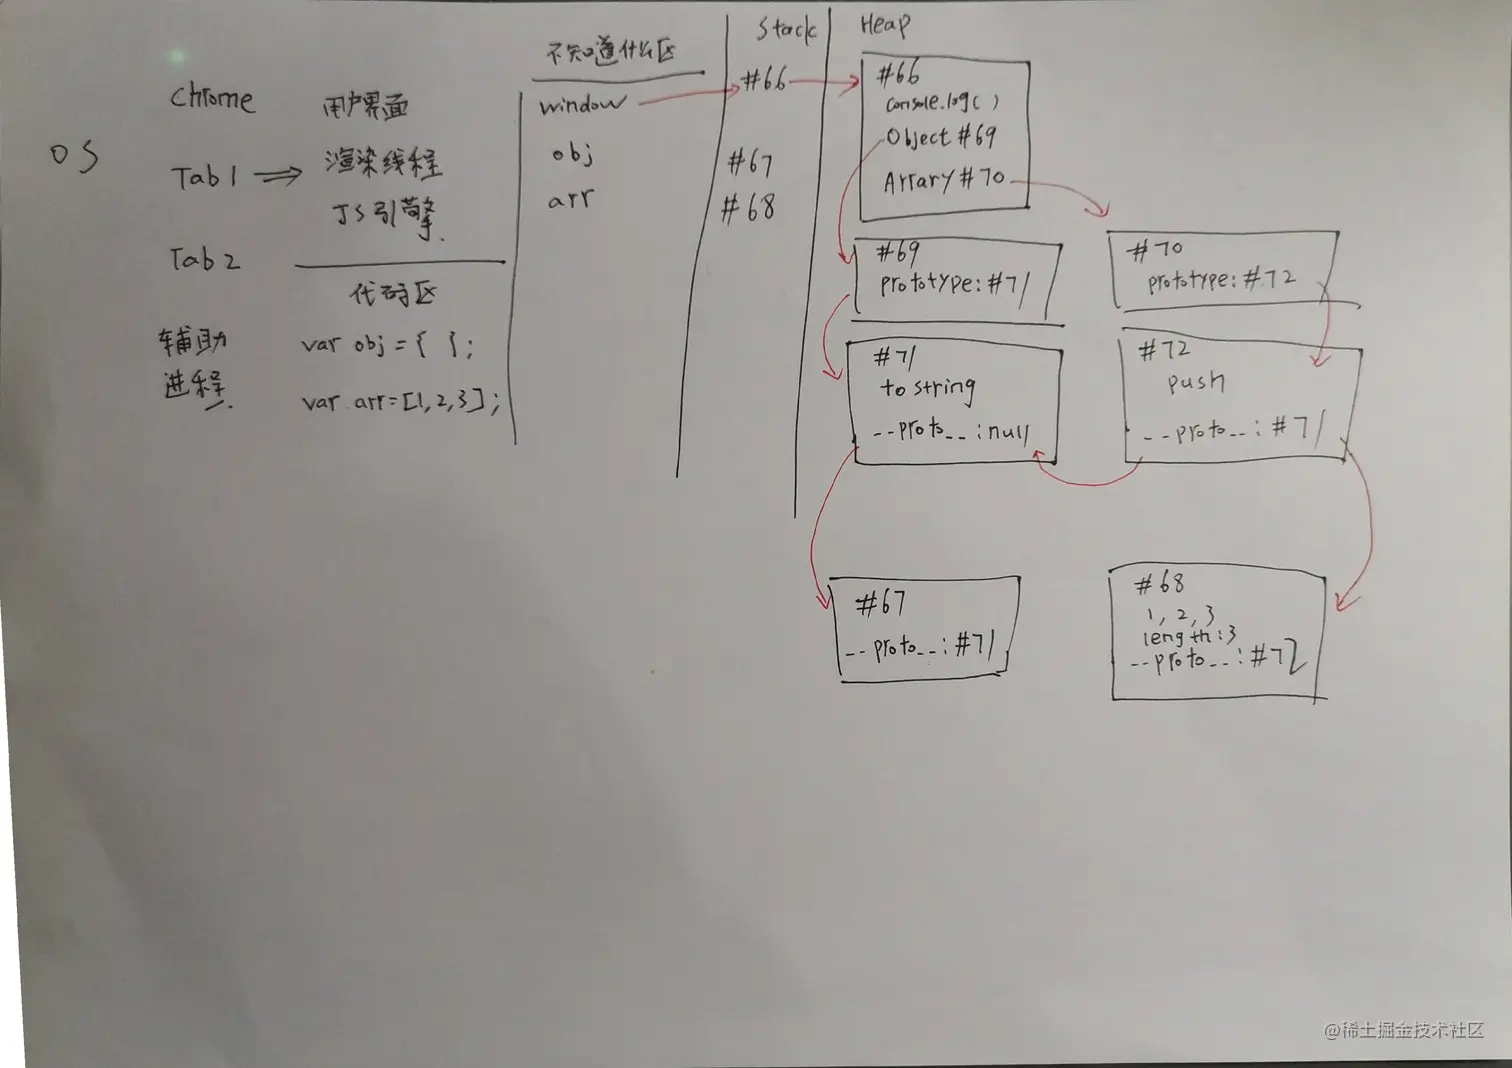 OS
Chrome
Tab1 ⇒
Tab2
辅助
进程.
用户界面
渲染线程
JS引擎.
代码区
var obj = { };
var arr=[1,2,3];
不知道什么区
window
obj
arr
Stack
#66
#67
#68
Heap
#66
console.log()
Object #69
Arrary #70
#69
prototype: #71
#70
prototype: #72
#71
to string
--proto--: null
#72
push
--proto--: #71
#67
--proto--: #71
#68
1, 2, 3
length:3
--proto--: #72
@稀土掘金技术社区